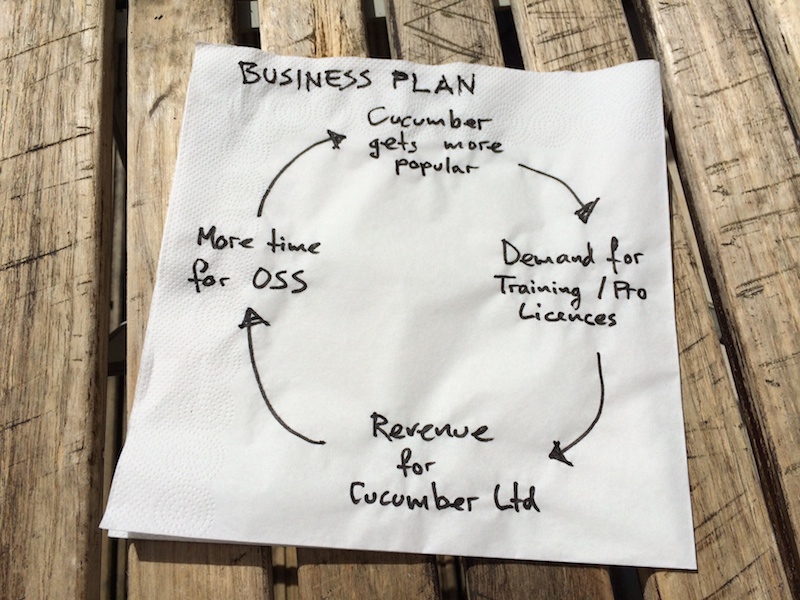 BUSINESS PLAN
Cucumber
gets more
popular
Demand for
Training / Pro
Licences
Revenue
for
Cucumber Ltd
More time
for OSS